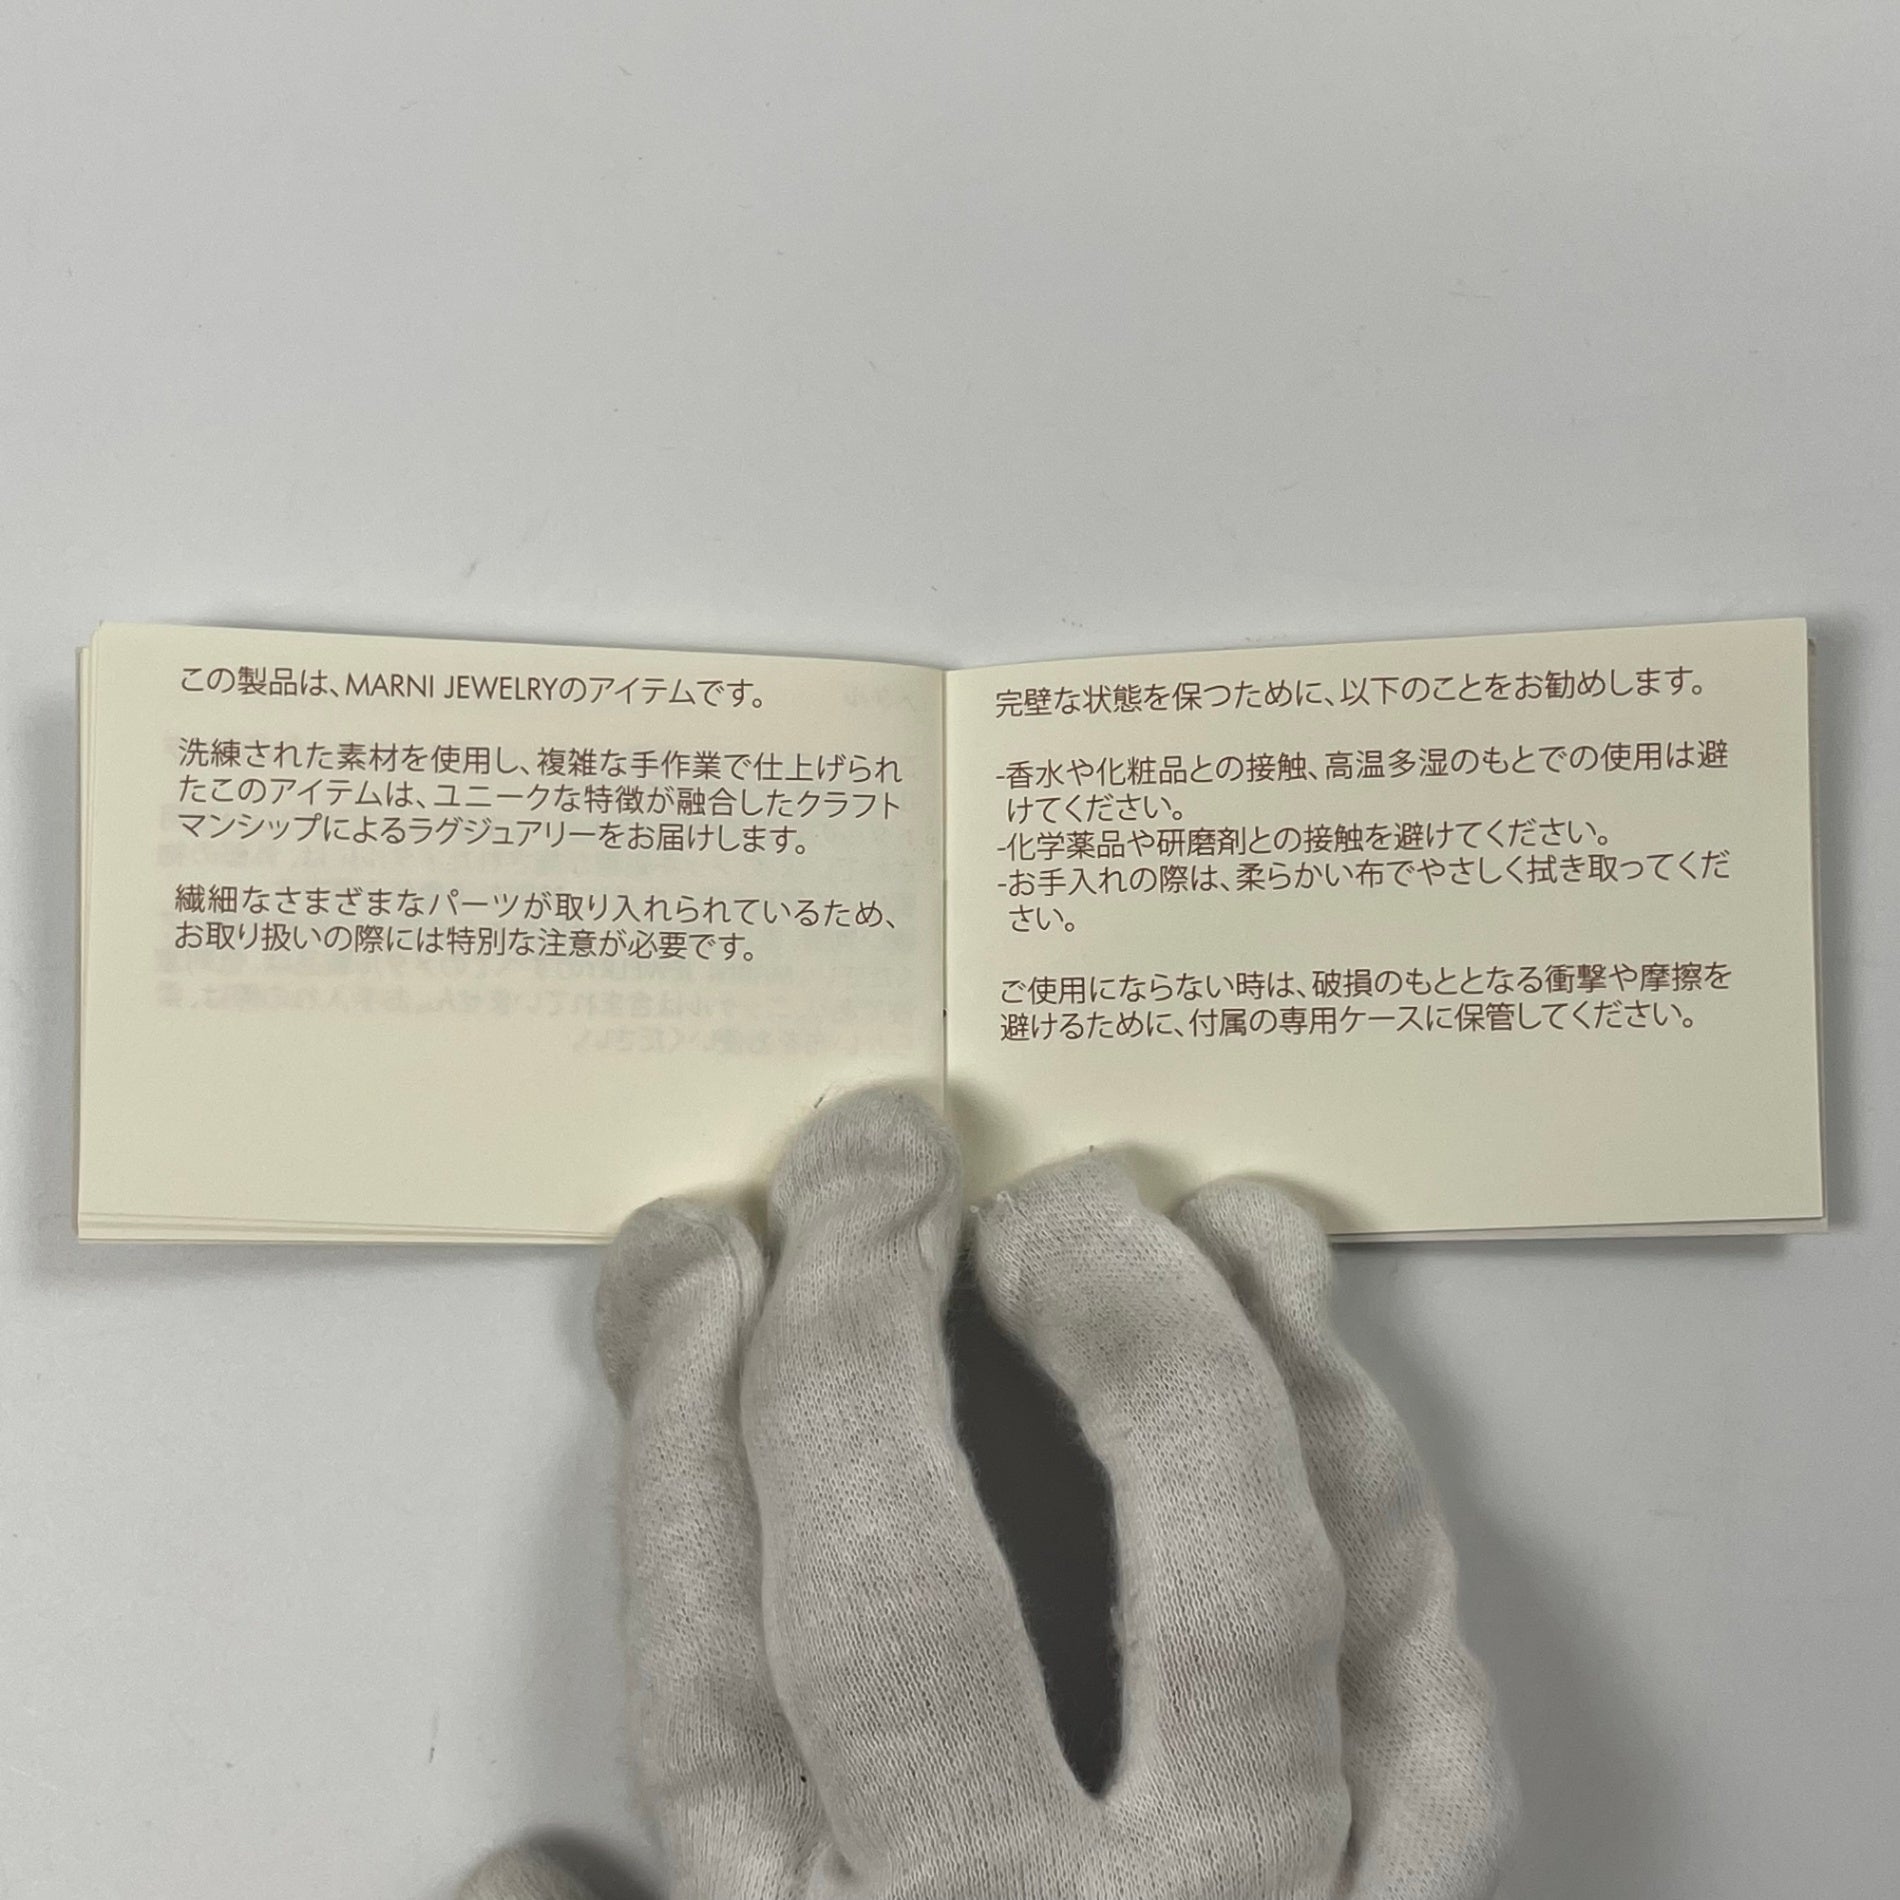 この製品は、MARNI JEWELRYのアイテムです。
洗練された素材を使用し、複雑な手作業で仕上げられ
たこのアイテムは、ユニークな特徴が融合したクラフト
マンシップによるラグジュアリーをお届けします。
繊細なさまざまなパーツが取り入れられているため、
お取り扱いの際には特別な注意が必要です。
完璧な状態を保つために、以下のことをお勧めします。
-香水や化粧品との接触、高温多湿のもとでの使用は避
けてください。
-化学薬品や研磨剤との接触を避けてください。
-お手入れの際は、柔らかい布でやさしく拭き取ってくだ
さい。
ご使用にならない時は、破損のもととなる衝撃や摩擦を
避けるために、付属の専用ケースに保管してください。